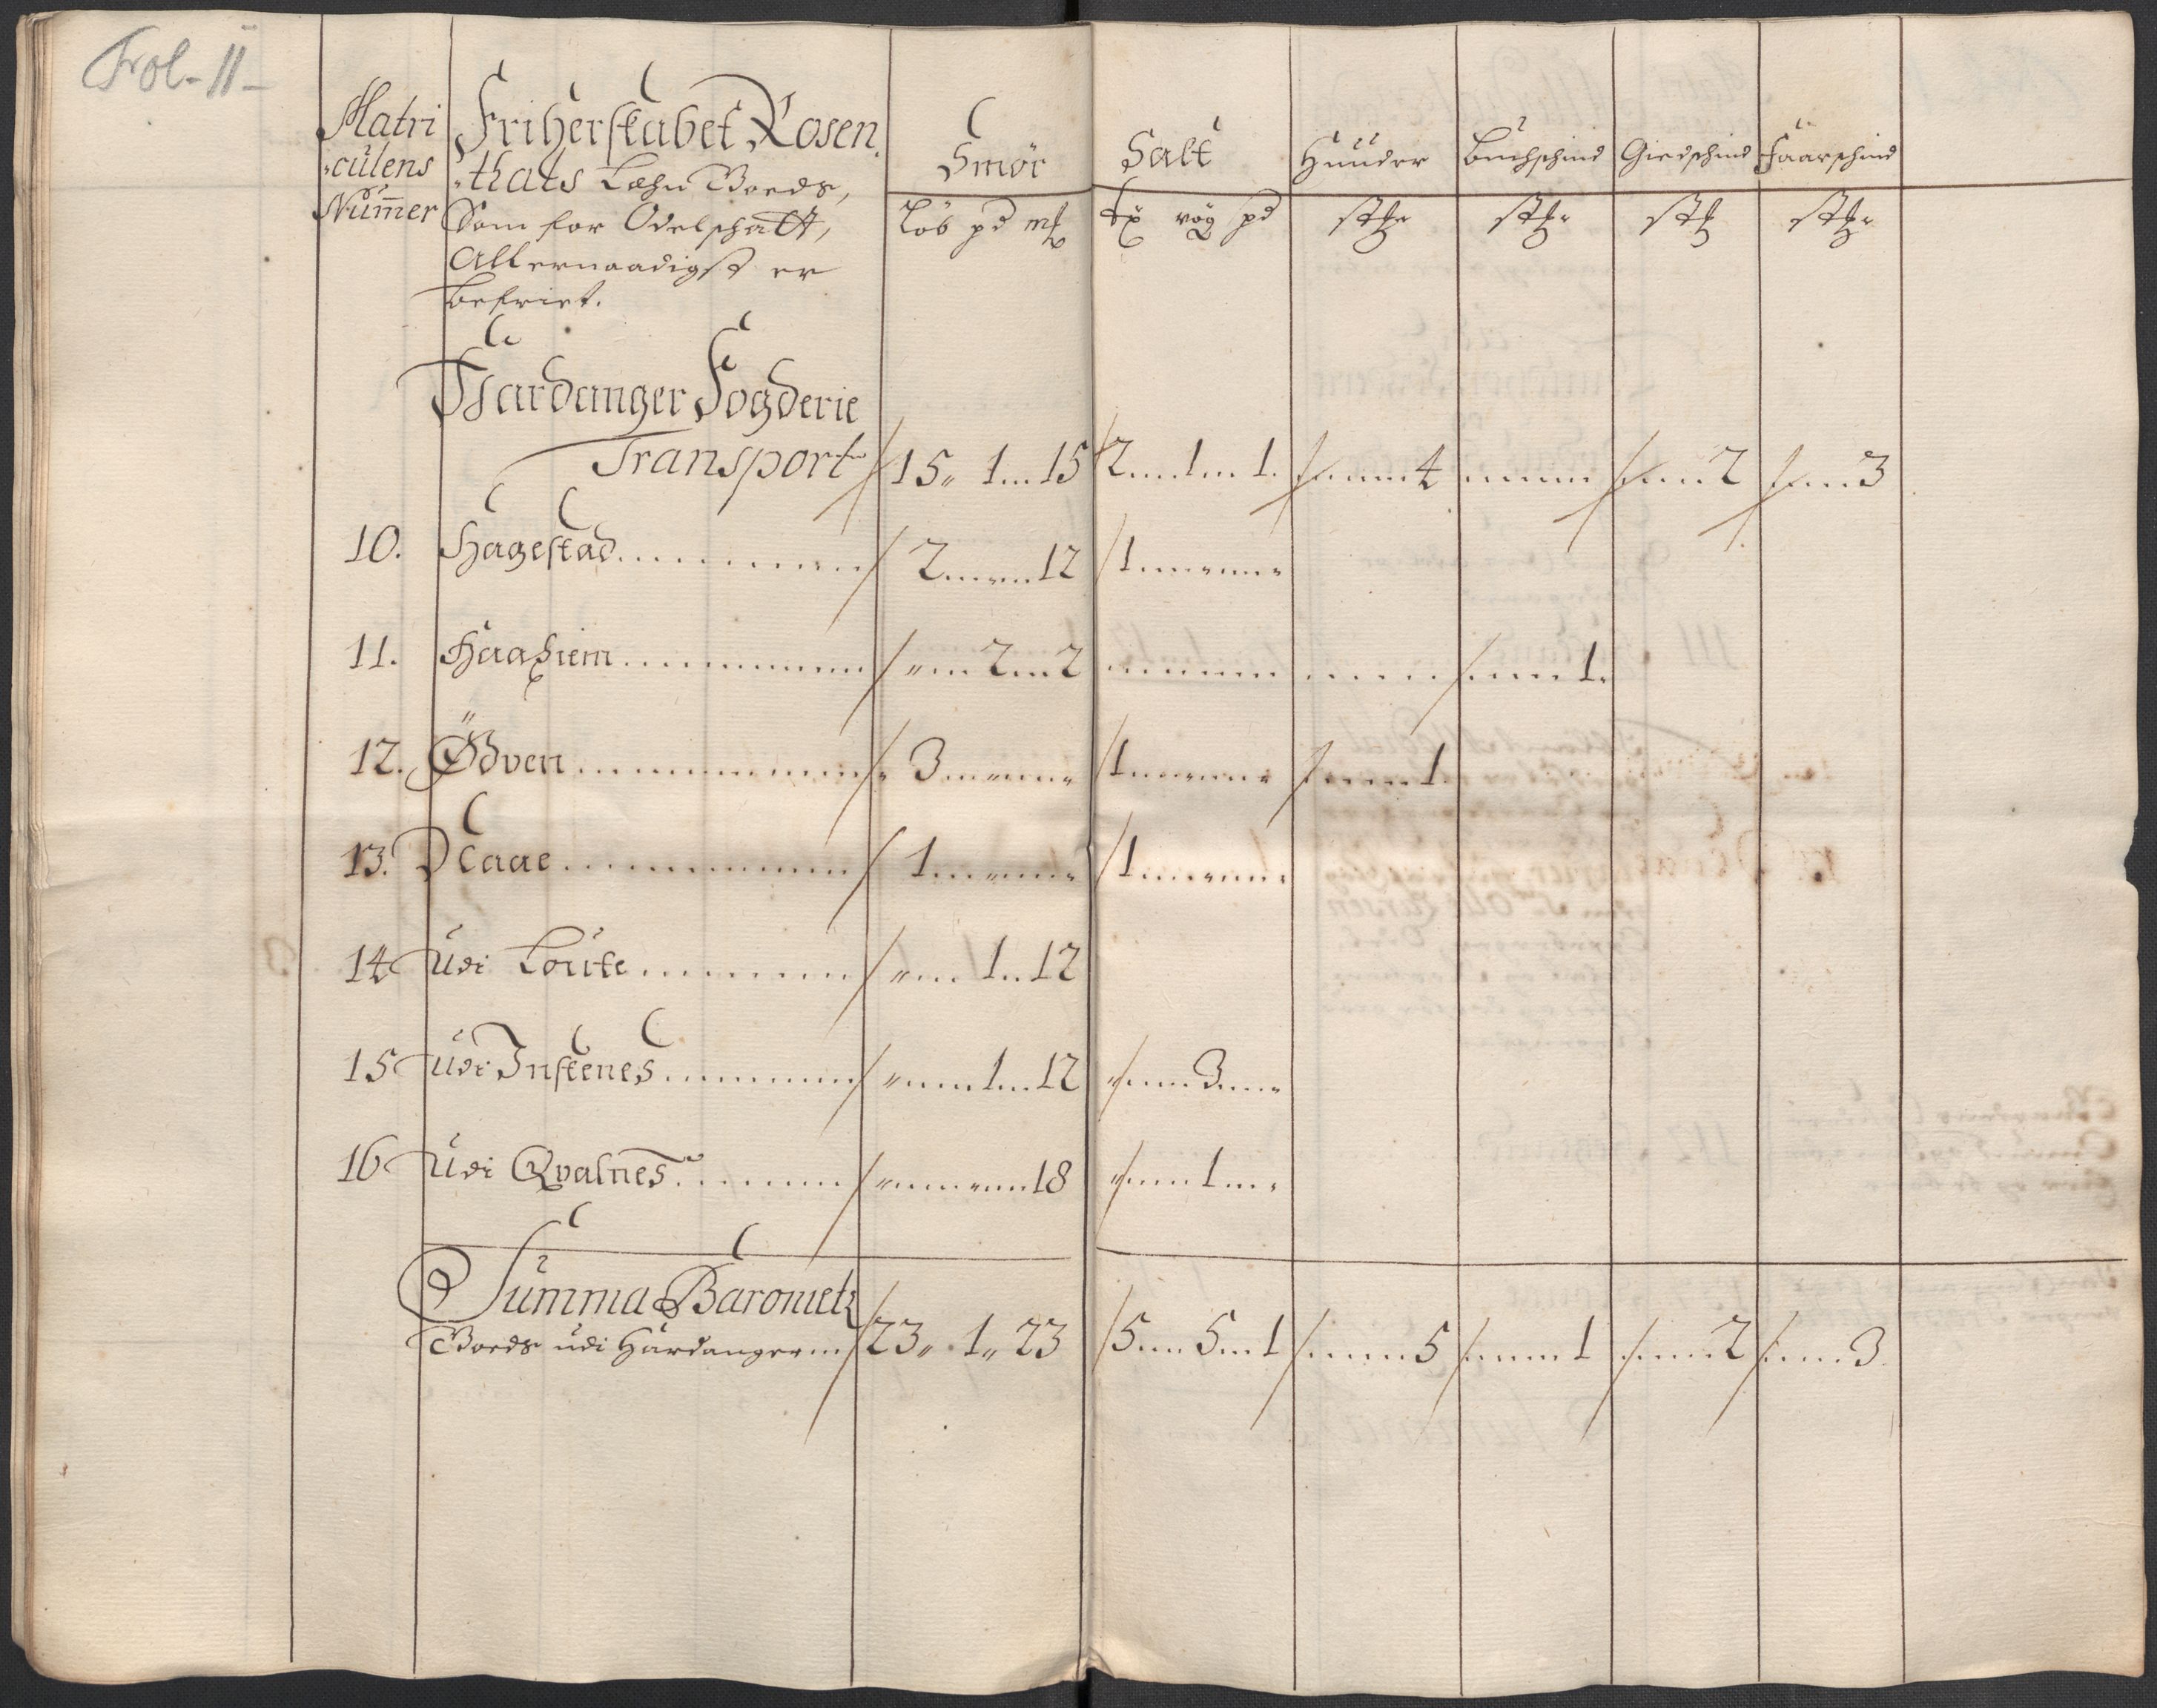 Fol. 11
Matri Friherskabet Rosen
-culens -thals Læhn Goeds,
Numer Som for Odelschatt,
Allernaadigst er
befriet.
Smör Salt Huuder Buchschind Giedschind Faarschind
Löb pd mk Tx vög pd stk stk stk stk
Hardanger Fogderie
Transport 15 " 1 15 2 1 1. 4 2 3
10. Hagestad 2 " 12 1 "
11. Haaheim " 2 2 1.
12. Ödven 3 " 1 " 1
13. Naae 1 " 1 "
14 Udi Loute " 1 12
15 Udi Instenes " 1 12 " 3
16 Udi Qvalnes " " 18 " 1
Summa Baroniets
Goeds udi Hardanger 23 " 1 " 23 5 5 1 5 1 2 3